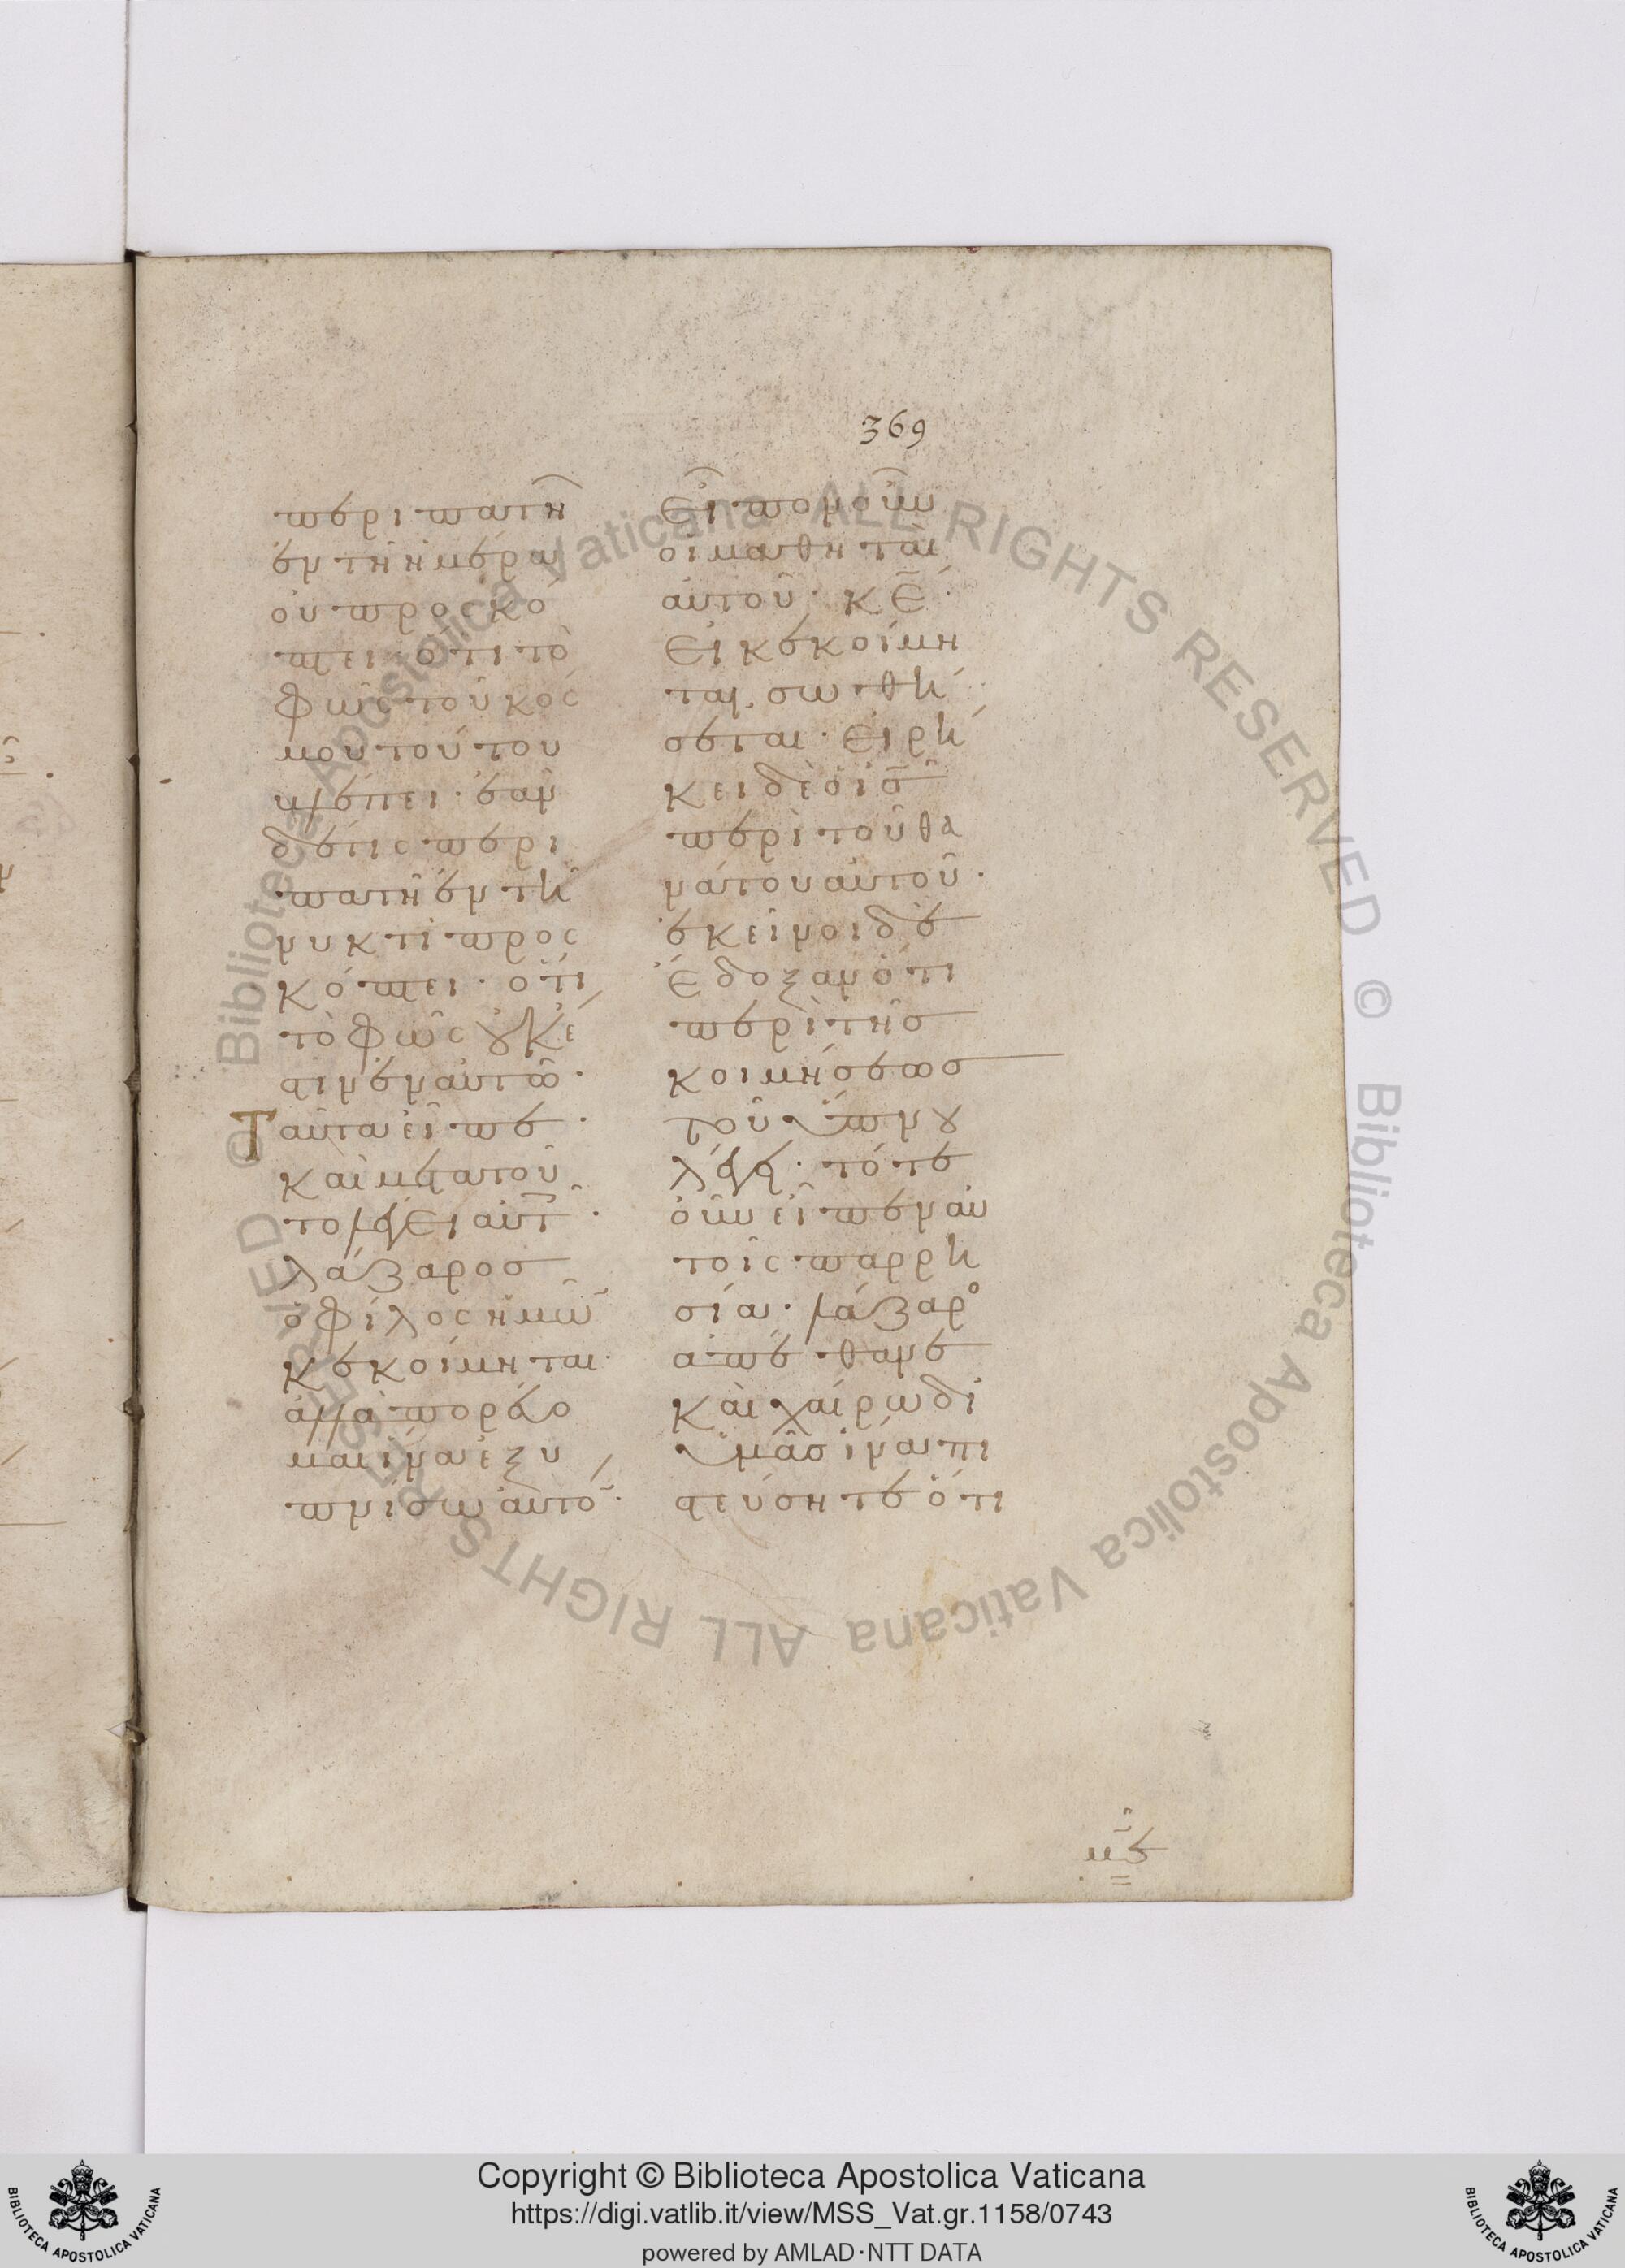 369
περιπατῆ
ἐν τῆ ἡμέρα
οὐ προσκό
πτει· ὅτι τὸ
φῶς τοῦ κόσ
μου τούτου
βλέπει· ἐὰν
δέ τις περι
πατῆ ἐν τῆ
νυκτὶ προσ
κόπτει· ὅτι
τὸ φῶς οὐκ ἔ
στιν ἐν αὐτῶ·
Ταῦτα εἶπε·
καὶ μετὰ τοῦ
το λέγει αὐτ̅·
λάζαρος
ὁ φίλος ἡμῶ̅
κεκοίμηται·
ἀλλὰ πορεύο
μαι ἵνα ἐξυ
πνίσω αὐτό̅·
Εἶπον οὖν
οἱ μαθηταὶ
αὐτοῦ· κ̅ε̅·
Εἰ κεκοίμη
ται, σωθή
σεται· Εἰρή
κει δὲ ὁ ι̅σ̅
περὶ τοῦ θα
νάτου αὐτοῦ·
ἐκεῖνοι δὲ
ἔδοξαν ὅτι
περὶ τῆς
κοιμήσεως
τοῦ ὕπνου
λέγει· τότε
οὖν εἶπεν αὐ
τοῖς παρρη
σία· λάζαρο
ἀπέθανε
καὶ χαίρω δι
ὑμᾶς ἵνα πι
στεύσητε ὅτι
Copyright © Biblioteca Apostolica Vaticana
https://digi.vatlib.it/view/MSS_Vat.gr.1158/0743
powered by AMLAD·NTT DATA